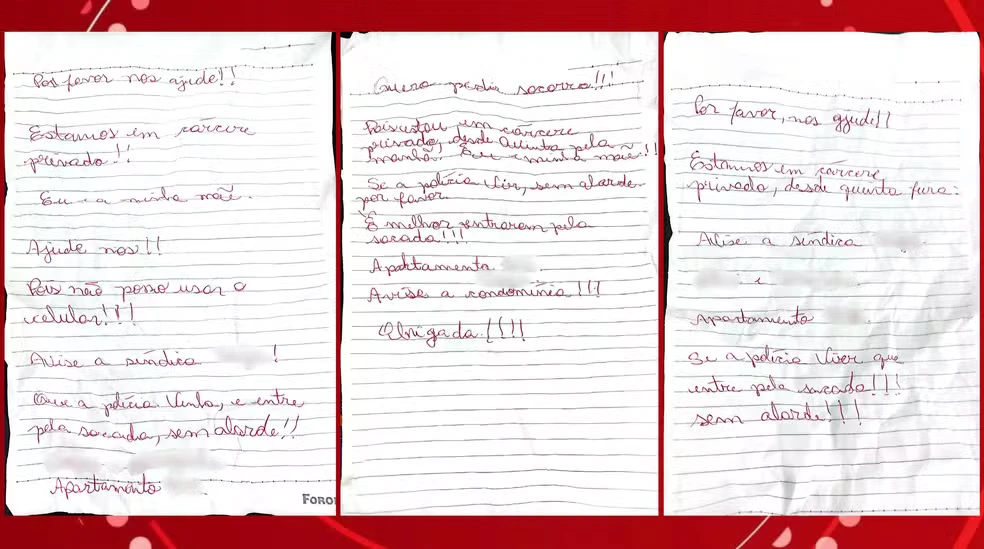 Por favor nos ajude!!
Estamos em cárcere
privado!!
Eu e a minha mãe.
Ajude nos!!
Pois não posso usar o
celular!!!
Avise a síndica !
Que a polícia. Venha, e entre
pela sacada, sem alarde!!
Apartamento
FORON
Quero pedir socorro!!!
Pois estou em cárcere
privado, desde Quinta pela
manhã. Eu e minha mãe!!
Se a polícia Vir, sem alarde
por favor.
É melhor entrarem pela
sacada!!!
Apartamento
Avise a condomínia!!!
Obrigada!!!!
Por favor, nos ajude!!
Estamos em cárcere
privado, desde quinta feira.
Avise a síndica
e
Apartamento
Se a polícia Vier que
entre pela sacada!!!
sem alarde!!!